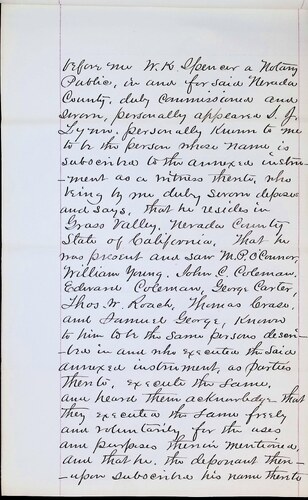 before me W. K. Spencer a Notary
Public, in and for said Nevada
County, duly commissioned and
sworn, personally appeared S. J.
Lynn, personally known to me
to be the person whose name is
subscribed to the annexed instru-
-ment as a witness thereto, who
being by me duly sworn deposes
and says, that he resides in
Grass Valley, Nevada County
State of California, that he
was present and saw M. P. O'Connor,
William Young, John C. Coleman,
Edward Coleman, George Carter,
Thos. W. Roach, Thomas
and Samuel George, known
to him to be the same persons descri-
-bed in and who executed the said
annexed instrument, as parties
thereto, execute the same,
and heard them acknowledge that
they executed the same freely
and voluntarily, for the uses
and purposes therein mentioned,
and that he, the deponant there-
-upon subscribed his name thereto